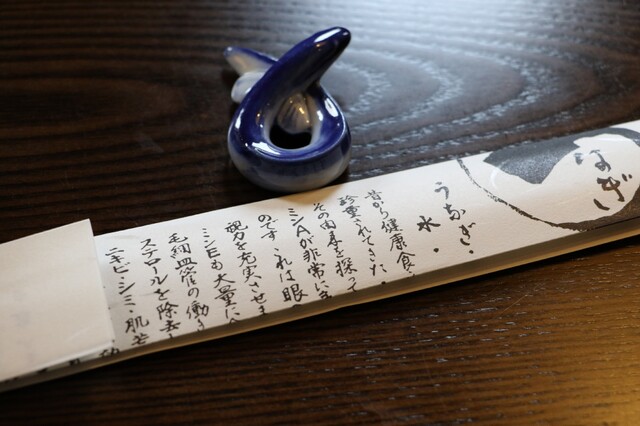 うなぎ
うなぎ・
水・
昔から健康食
珍重されてきた・
その内容を探って
ミンAが非常に
のです これは眼の
視力を充実させま
ミンEも大量に
毛細血管の働き
ステロールを除去し
ニキビ・シミ・肌